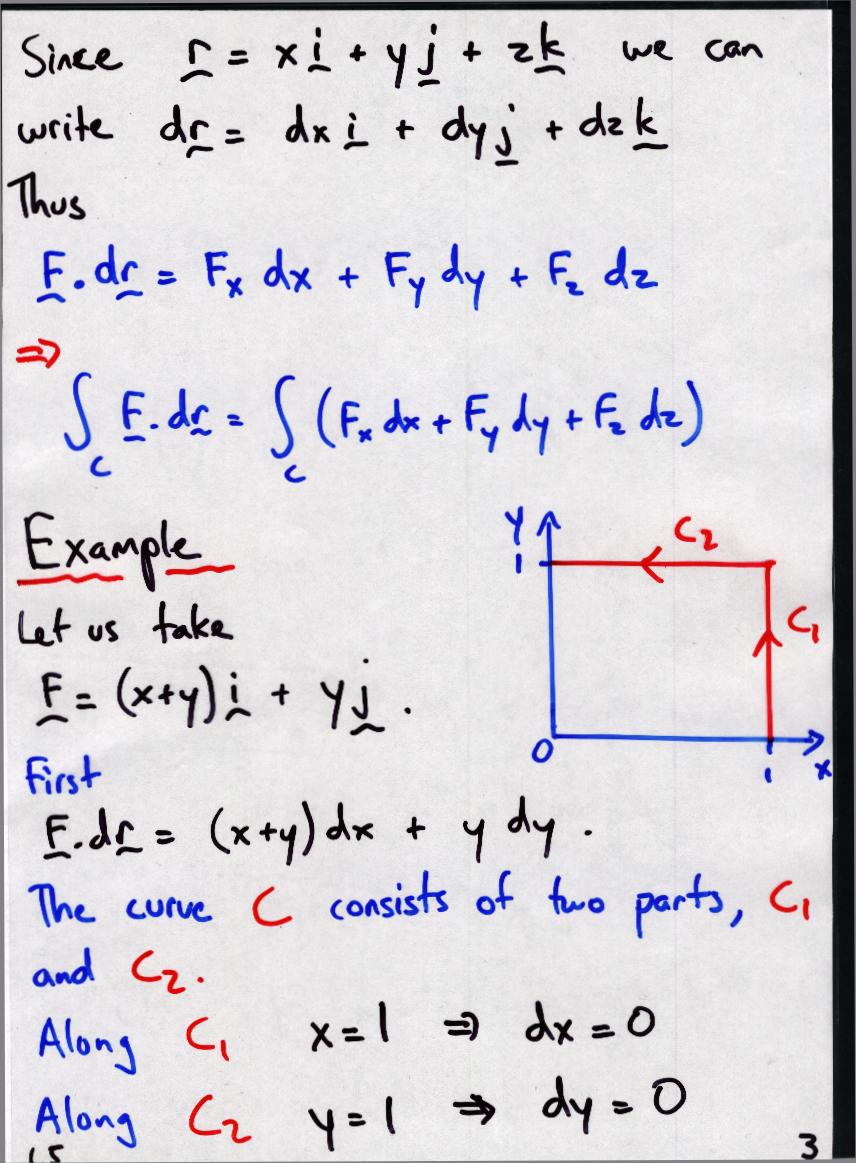 Since r = x i + y j + z k we can
write dr = dx i + dy j + dz k
Thus
F.dr = Fx dx + Fy dy + Fz dz
⇒
∫C F.dr = ∫C (Fx dx + Fy dy + Fz dz)
Example
Let us take
F = (x+y) i + y j .
y
1
C2
C1
0
1
x
First
F.dr = (x+y) dx + y dy .
The curve C consists of two parts, C1
and C2.
Along C1 x = 1 ⇒ dx = 0
Along C2 y = 1 ⇒ dy = 0
3